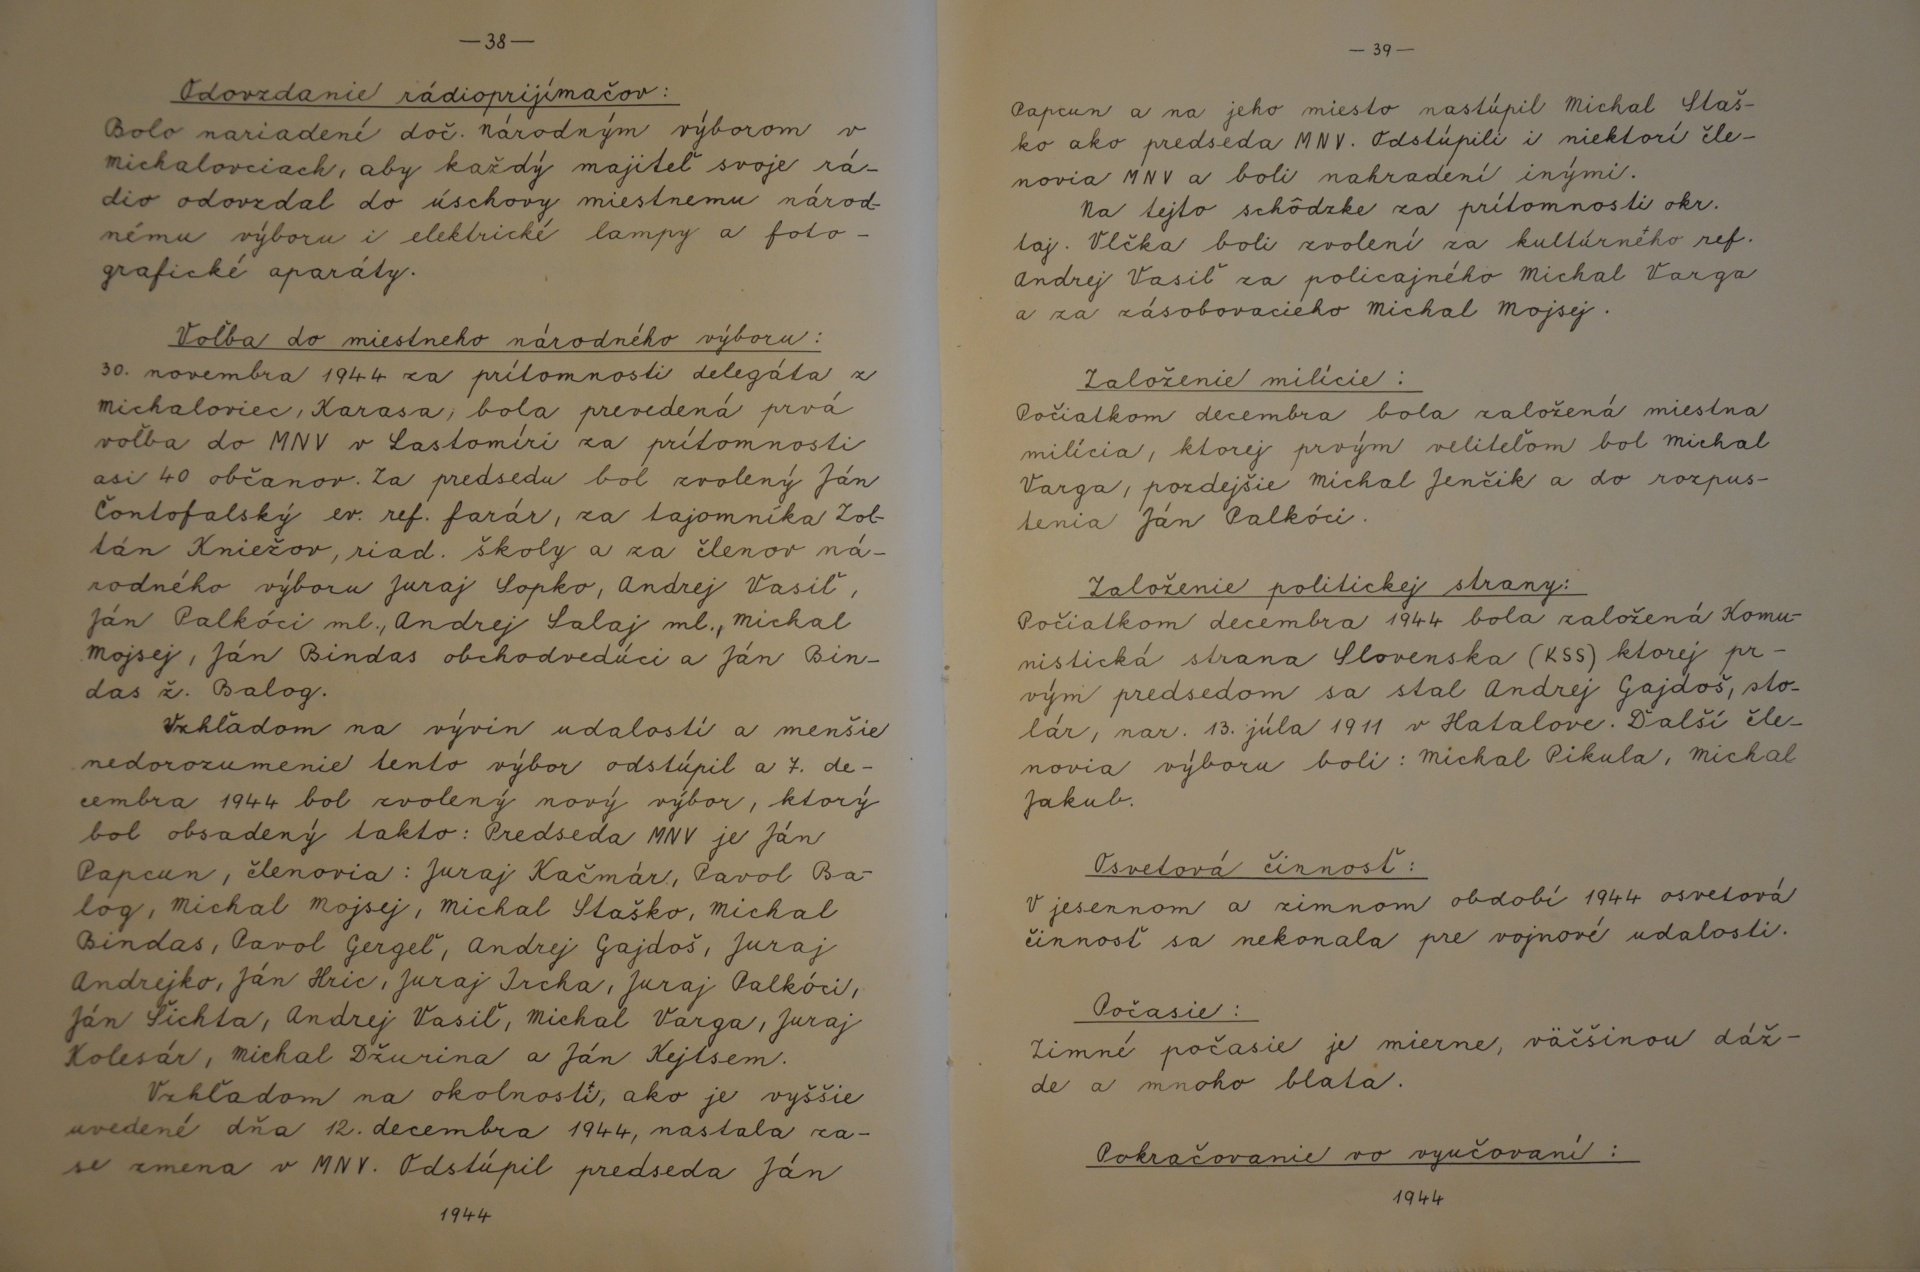 —38—
Odovzdanie rádioprijímačov:
Bolo nariadené doč. národným výborom v
Michalovciach, aby každý majiteľ svoje rá-
dio odovzdal do úschovy miestnemu národ-
nému výboru i elektrické lampy a foto-
grafické aparáty.
Voľba do miestneho národného výboru:
30. novembra 1944 za prítomnosti delegáta z
Michaloviec, Karasa, bola prevedená prvá
voľba do MNV v Lastomíri za prítomnosti
asi 40 občanov. Za predsedu bol zvolený Ján
Čontofalský ev. ref. farár, za tajomníka Zol-
tán Kniežov, riad. školy a za členov ná-
rodného výboru Juraj Sopko, Andrej Vasiľ,
Ján Palkóci ml., Andrej Salaj ml., Michal
Mojsej, Ján Bindas obchodvedúci a Ján Bin-
das ž. Balog.
Vzhľadom na vývin udalostí a menšie
nedorozumenie tento výbor odstúpil a 7. de-
cembra 1944 bol zvolený nový výbor, ktorý
bol obsadený takto: Predseda MNV je Ján
Papcun, členovia: Juraj Kačmár, Pavol Ba-
log, Michal Mojsej, Michal Staško, Michal
Bindas, Pavol Gergeľ, Andrej Gajdoš, Juraj
Andrejko, Ján Hric, Juraj Ircha, Juraj Palkóci,
Ján Šichta, Andrej Vasiľ, Michal Varga, Juraj
Kolesár, Michal Džurina a Ján Kejtsem.
Vzhľadom na okolnosti, ako je vyššie
uvedené dňa 12. decembra 1944, nastala za-
se zmena v MNV. Odstúpil predseda Ján
1944
—39—
Papcun a na jeho miesto nastúpil Michal Staš-
ko ako predseda MNV. Odstúpili i niektorí čle-
novia MNV a boli nahradení inými.
Na tejto schôdzke za prítomnosti okr.
taj. Vlčka boli zvolení za kultúrného ref.
Andrej Vasiľ za policajného Michal Varga
a za zásobovacieho Michal Mojsej.
Založenie milície:
Počiatkom decembra bola založená miestna
milícia, ktorej prvým veliteľom bol Michal
Varga, pozdejšie Michal Jenčik a do rozpus-
tenia Ján Palkóci.
Založenie politickej strany:
Počiatkom decembra 1944 bola založená Komu-
nistická strana Slovenska (KSS) ktorej pr-
vým predsedom sa stal Andrej Gajdoš, sto-
lár, nar. 13. júla 1911 v Hatalove. Ďalší čle-
novia výboru boli: Michal Pikula, Michal
Jakub.
Osvetová činnosť:
V jesennom a zimnom období 1944 osvetová
činnosť sa nekonala pre vojnové udalosti.
Počasie:
Zimné počasie je mierne, väčšinou dáž-
de a mnoho blata.
Pokračovanie vo vyučovaní:
1944